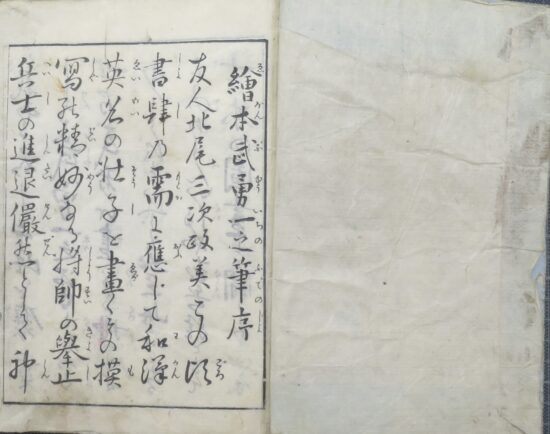 繪本武勇一之筆序
友人北尾三次政美この頃
書肆乃需に應じて和漢
英名の壮子を畫くその模
寫の精妙なる將帥の擧止
兵士の進退儼然として神